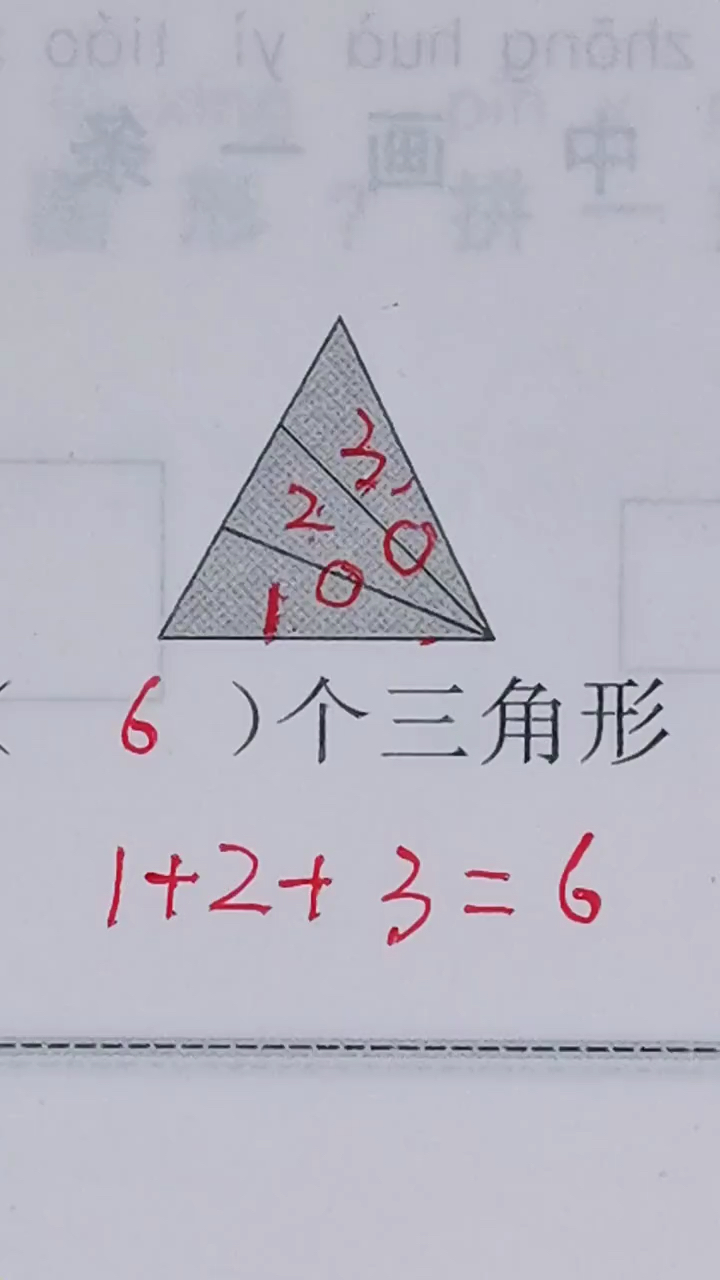 3
2
1
( 6 )个三角形
1+2+3=6